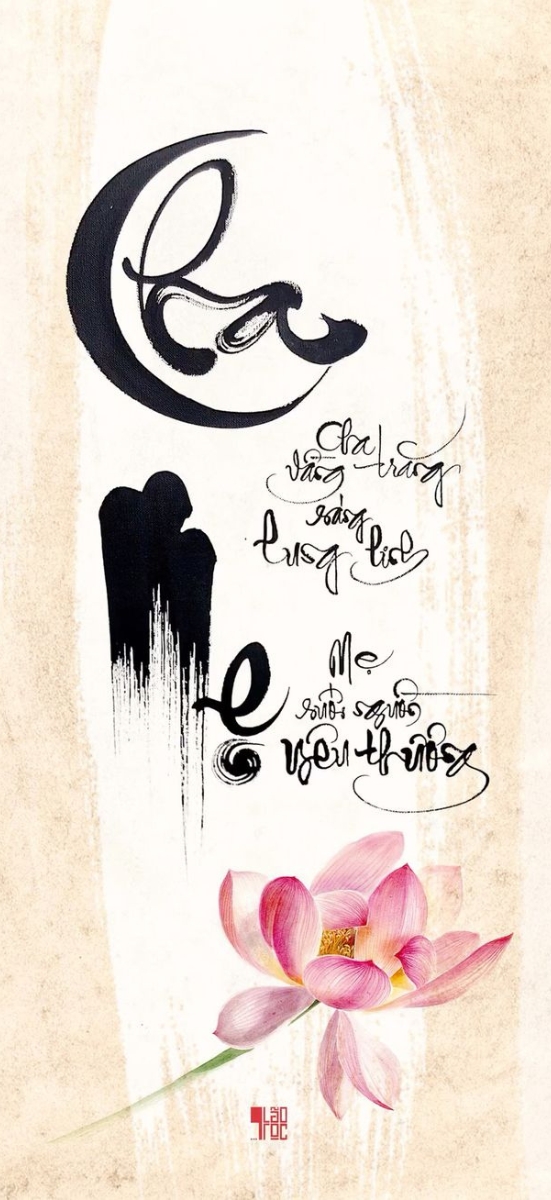 Cha
Cha
vầng trăng
sáng
lung linh
Mẹ
Mẹ
suối nguồn
yêu thương